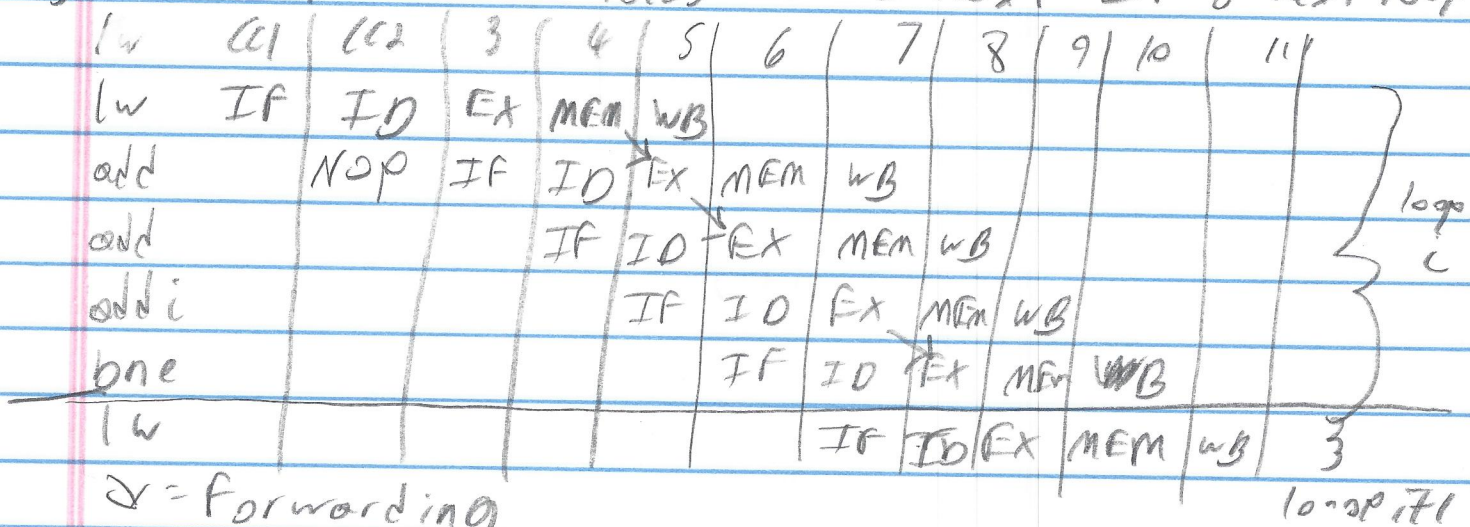 lw CC1 CC2 3 4 5 6 7 8 9 10 11
lw IF ID EX MEM WB
add NOP IF ID EX MEM WB
add IF ID EX MEM WB
addi IF ID EX MEM WB
bne IF ID EX MEM WB
lw IF ID EX MEM WB
loop
i
= Forwarding
loop i+1